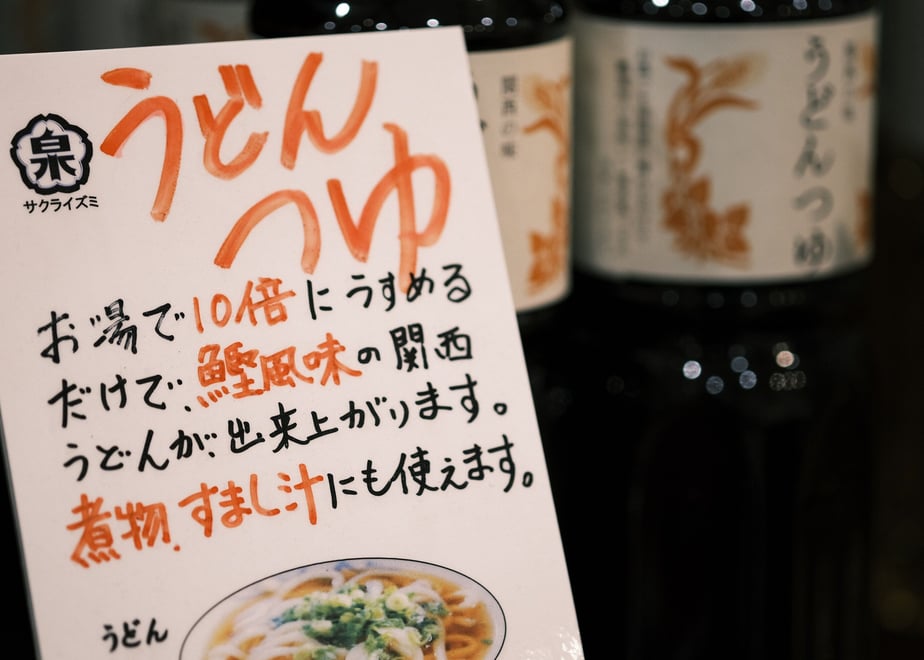 うどん
つゆ
泉
サクライズミ
お湯で10倍にうすめる
だけで、鰹風味の関西
うどんが、出来上がります。
煮物、すまし汁にも使えます。
うどん
関西の味
うどんつゆ